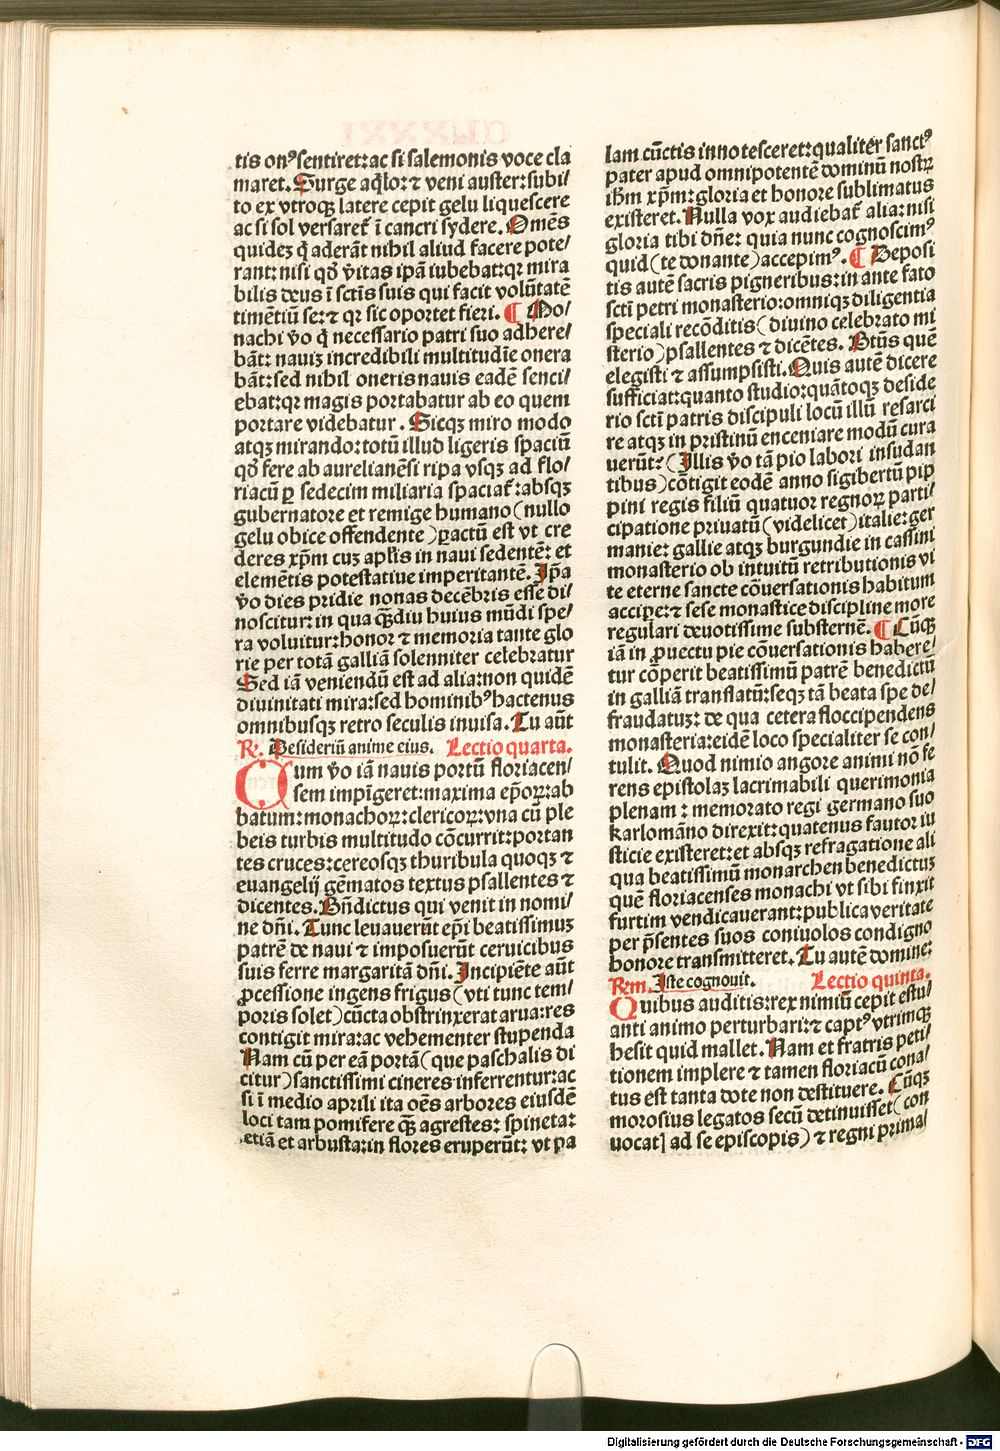 tis onꝰ sentiret: ac si salemonis voce cla
maret. Surge aq̇lo: ⁊ veni auster: subi/
to ex vtroqꝫ latere cepit gelu liquescere
ac si sol versaret̃ ĩ cancri sydere. Omẽs
quidez q̇ aderãt nihil aliud facere pote/
rant: nisi qđ v̾itas ipã iubebat: qꝛ mira
bilis deus ĩ sctĩs suis qui facit volũtatẽ
timẽtiũ se: ⁊ qꝛ sic oportet fieri. ¶ Mo/
nachi v̾o q̇ necessario patri suo adhere/
bãt: nauiꝫ incredibili multitudĩe onera
bãt: sed nihil oneris nauis eadẽ senci/
ebat: qꝛ magis portabatur ab eo quem
portare videbatur. Sicqꝫ miro modo
atqꝫ mirando: totũ illud ligeris spaciũ
qđ fere ab aurelianẽsi ripa vsqꝫ ad flo/
riacũ ꝑ sedecim miliaria spaciat̃: absqꝫ
gubernatore et remige humano (nullo
gelu obice offendente) ꝑactũ est vt cre
deres xp̃m cuꝫ apl̃is in naui sedentẽ: et
elemẽtis potestatiue imperitantẽ. Ip̃a
v̾o dies pridie nonas decẽbris esse di/
noscitur: in qua q̃ꝫdiu huius mũdi spe/
ra voluitur: honor ⁊ memoria tante glo
rie per totã galliã solenniter celebratur
Sed iã veniendũ est ad alia: non quidẽ
diuinitati mira: sed hominibꝰ hactenus
omnibusqꝫ retro seculis inuisa. Tu aũt
R̾. Desideriũ anime eius. Lectio quarta.
Cum v̾o iã nauis portũ floriacen/
sem imp̃ĩgeret: maxima ep̃oꝝ: ab
batum: monachoꝝ: clericoꝝ: vna cũ ple
beis turbis multitudo cõcurrit: portan
tes cruces: cereosqꝫ thuribula quoqꝫ ⁊
euangelij gẽmatos textus psallentes ⁊
dicentes. Bñdictus qui venit in nomi/
ne dñi. Tunc leuauerũt ep̃i beatissimuꝫ
patrẽ de naui ⁊ imposuerũt ceruicibus
suis ferre margaritã dñi. Incipiẽte aũt
ꝓcessione ingens frigus (vti tunc tem/
poris solet) cũcta obstrinxerat arua: res
contigit mira: ac vehementer stupenda
Nam cũ per eã portã (que paschalis di
citur) sanctissimi cineres inferrentur: ac
si ĩ medio aprili ita oẽs arbores eiusdẽ
loci tam pomifere q̃ꝫ agrestes: spineta:
etiã et arbusta: in flores eruperũt: vt pa
lam cũctis innotesceret: qualiter sanctꝰ
pater apud omnipotentẽ dominũ nostꝝ
ih̃m xp̃m: gloria et honore sublimatus
existeret. Nulla vox audiebat̃ alia: nisi
gloria tibi dñe: quia nunc cognoscimꝰ
quid (te donante) accepimꝰ. ¶ Deposi
tis autẽ sacris pigneribus: in ante fato
sctĩ petri monasterio: omniqꝫ diligentia
speciali recõditis (diuino celebrato mi
sterio) psallentes ⁊ dicẽtes. Btũs quẽ
elegisti ⁊ assumpsisti. Quis autẽ dicere
sufficiat: quanto studio: quãtoqꝫ deside
rio sctĩ patris discipuli locũ illũ resarci
re atqꝫ in pristinũ enceniare modũ cura
uerũt? (Illis v̾o tã pio labori insudan
tibus) cõtigit eodẽ anno sigibertũ pip
pini regis filiũ quatuor regnoꝝ parti/
cipatione priuatũ (videlicet) italie: ger
manie: gallie atqꝫ burgundie in cassini
monasterio ob intuitũ retributionis vi
te eterne sancte cõuersationis habitum
accipe: ⁊ sese monastice discipline more
regulari deuotissime substernẽ. ¶ Cũqꝫ
iã in ꝓuectu pie cõuersationis habere/
tur cõperit beatissimũ patrẽ benedictũ
in galliã translatũ: seqꝫ tã beata spe de/
fraudatuꝫ: de qua cetera floccipendens
monasteria: eidẽ loco specialiter se con/
tulit. Quod nimio angore animi nõ fe
rens epistolaꝫ lacrimabili querimonia
plenam: memorato regi germano suo
karlomãno direxit: quatenus fautor iu
sticie existeret: et absqꝫ refragatione ali
qua beatissimũ monarchen benedictuꝫ
quẽ floriacenses monachi vt sibi finxit
furtim vendicauerant: publica veritate
per p̃sentes suos coniuolos condigno
honore transmitteret. Tu autẽ domine:
R̾m. Iste cognouit. Lectio quinta.
Quibus auditis: rex nimiũ cepit estu/
anti animo perturbari: ⁊ captꝰ vtrimqꝫ
hesit quid mallet. Nam et fratris peti/
tionem implere ⁊ tamen floriacũ cona/
tus est tanta dote non destituere. Cũqꝫ
morosius legatos secũ detinuisset (con
uocat] ad se episcopis) ⁊ regni prima/
Digitalisierung gefördert durch die Deutsche Forschungsgemeinschaft - DFG